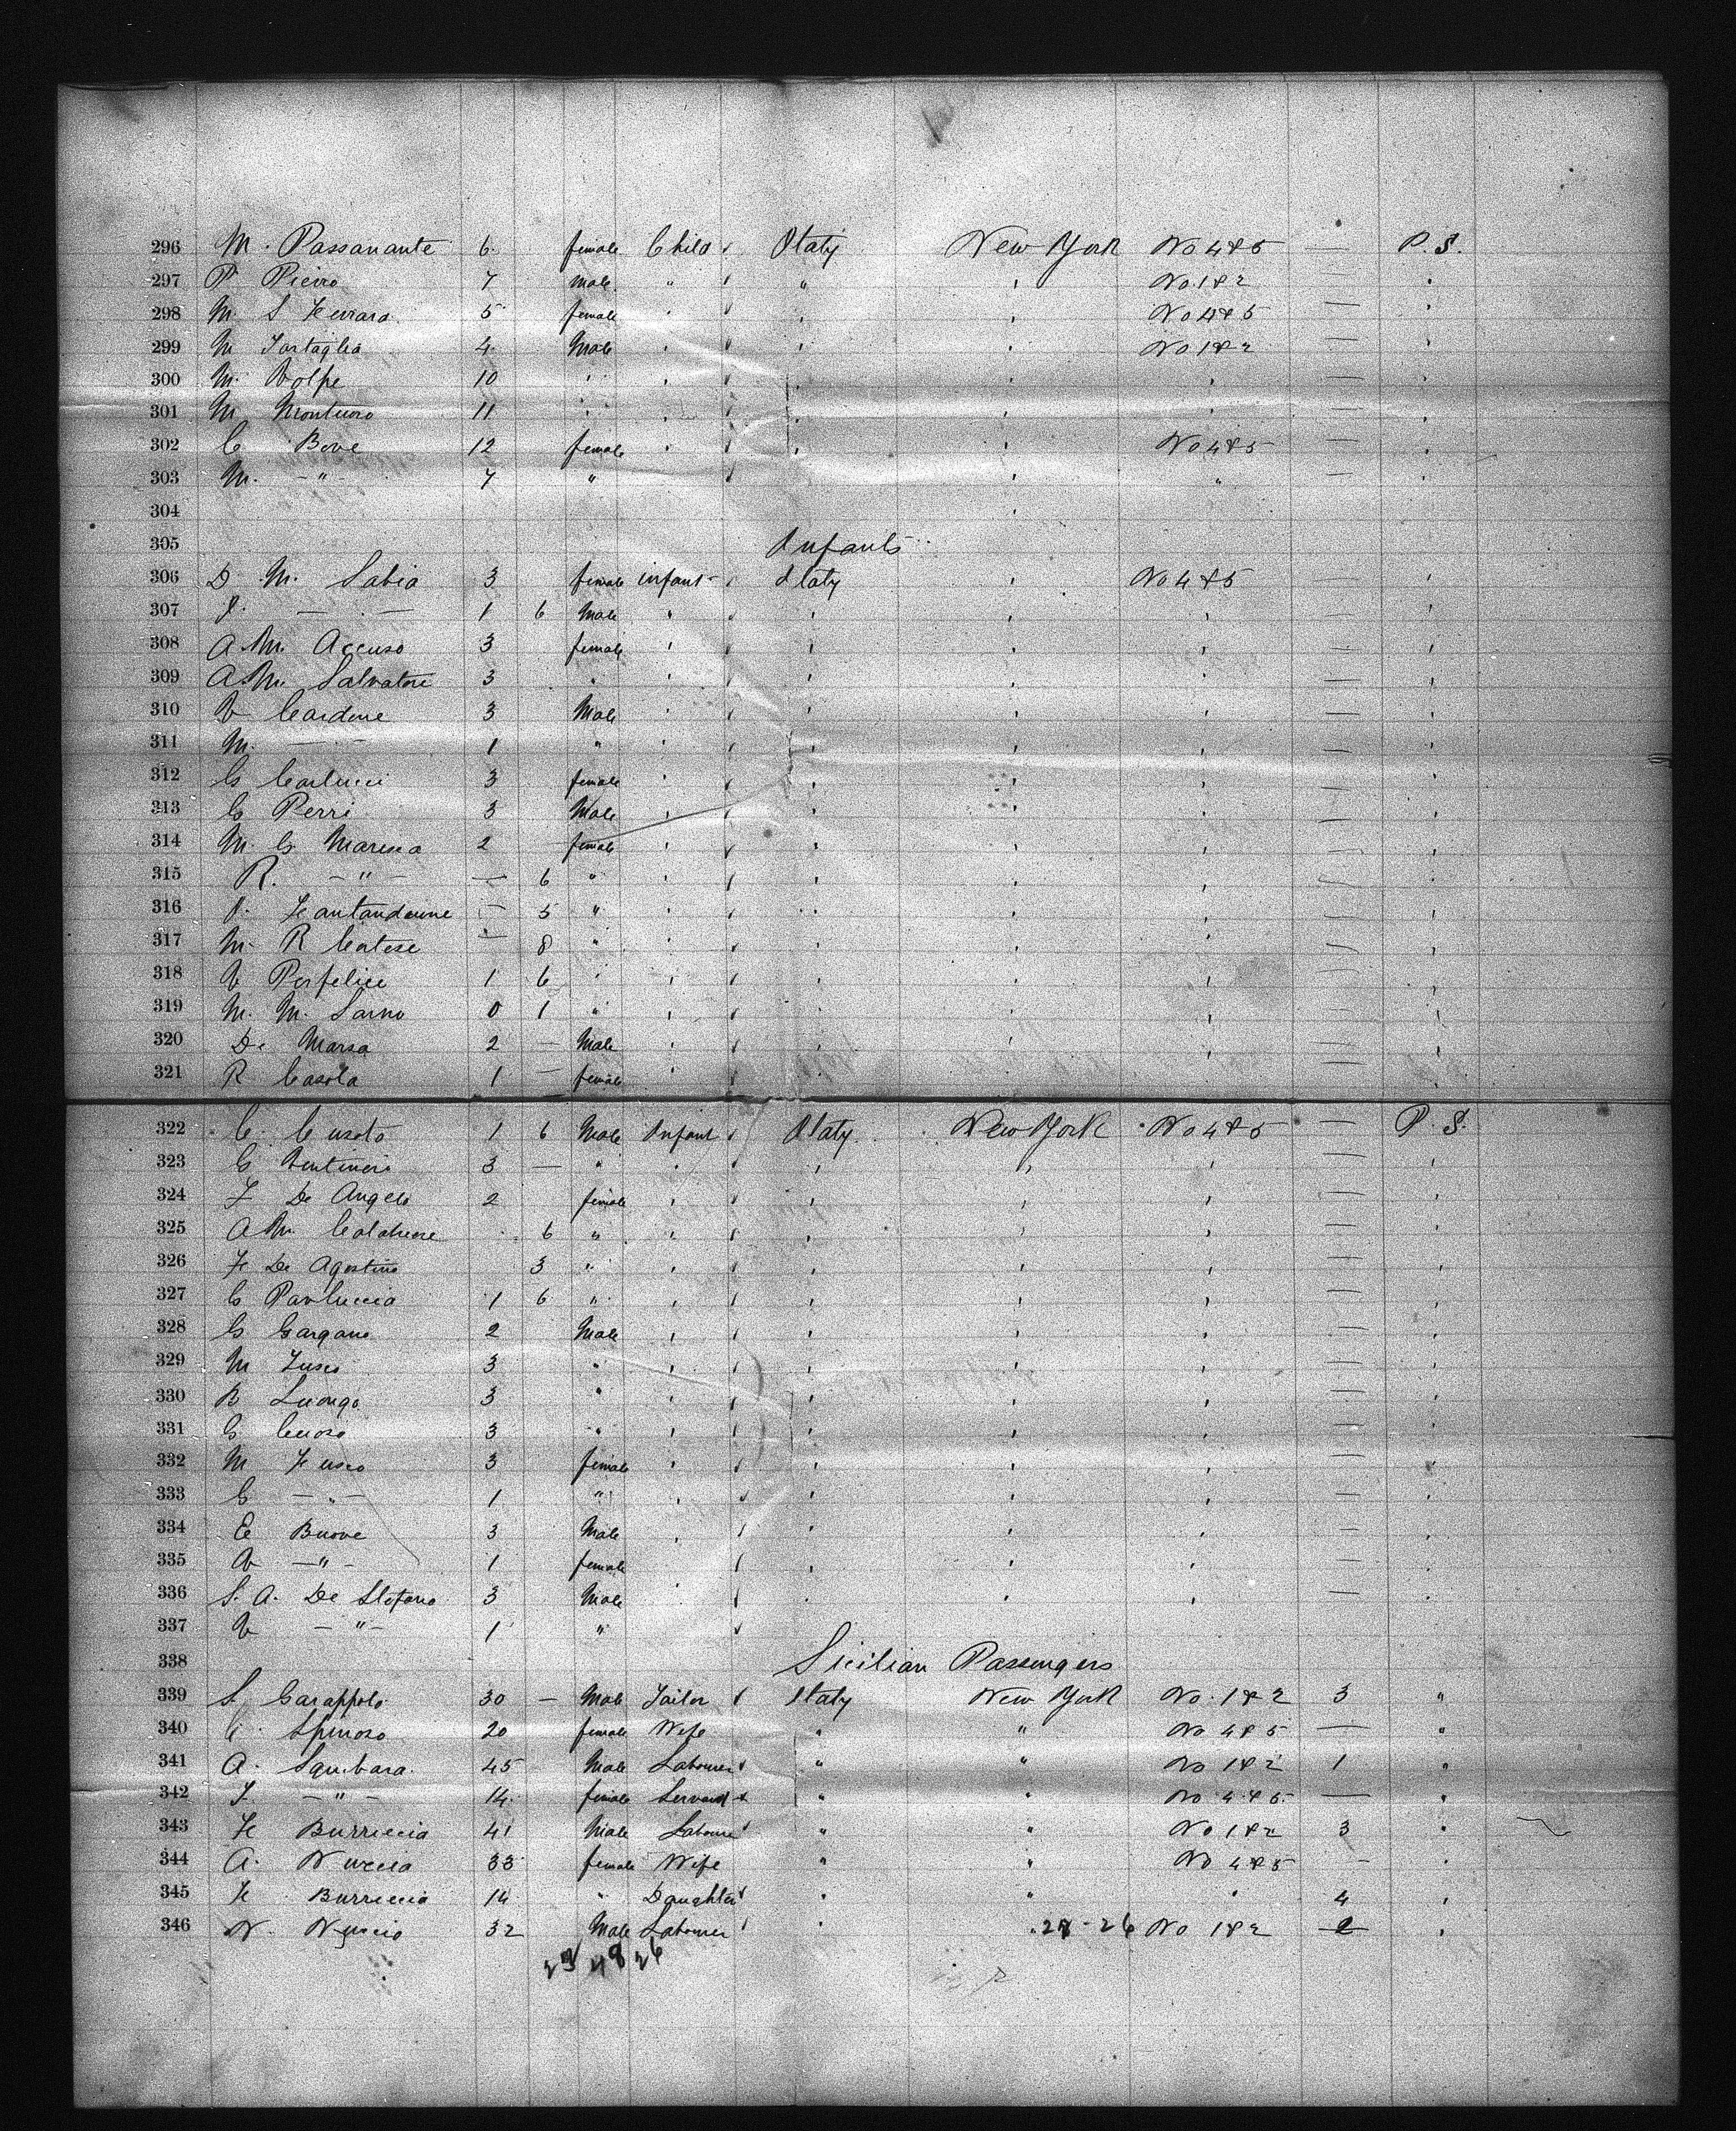 296 M. Passanante 6 female Child Italy New York No 4&5 — P.S.
297 P Pierro 7 Male " " ' No.1&2 '
298 M S Ferrara 5 female ' ' ' No 4&5 — '
299 M Tartaglia 4 Male ' ' ' No 1&2 — '
300 M. Volpe 10 ' ' ' ' ' — '
301 M Montuoro 11 ' ' ' ' ' — '
302 C Bove 12 female ' ' ' No 4&5 — '
303 M. - " - 7 " ' " — '
304 '
305 Infants
306 D. M. Sabia 3 female infant Italy ' No 4&5 '
307 — . — 1 6 Male " ' ' ' — '
308 A.M. Accuso 3 female ' ' ' ' — '
309 A.M. Salvatore 3 " ' ' ' ' — '
310 V Cardone 3 Male ' ' ' ' — '
311 M. — . — 1 " ' ' ' ' — '
312 G Carlucci 3 female ' ' ' ' — '
313 C Perri 3 Male ' ' ' ' — '
314 M. G Maresca 2 female ' ' ' ' — '
315 R. - " - — 6 " ' ' ' ' — '
316 — 5 " ' ' ' ' — '
317 M. R — 8 " ' ' ' ' — '
318 V Perfelice 1 6 ' ' ' ' ' — '
319 M. M. Sarno 0 1 " ' ' ' ' — '
320 De Marsa 2 — Male ' ' ' ' — '
321 R Casola 1 — female '
322 C. Cusato 1 6 Male Infant Italy New York No 4&5 — P.S.
323 G 3 — " ' ' ' ' — '
324 F De Angelo 2 female ' ' ' ' — '
325 A M. 6 " ' ' ' ' — '
326 F De Agostino 3 " ' ' ' ' — '
327 C Paoluccia 1 6 " ' ' ' ' — '
328 G Gargano 2 Male ' ' ' ' — '
329 M Fusco 3 " ' ' ' ' — '
330 B Luongo 3 " ' ' ' ' — '
331 G 3 " ' ' ' ' — '
332 M Fusco 3 female ' ' ' ' — '
333 G - " - 1 " ' ' ' — '
334 E Buove 3 Male ' ' ' ' — '
335 - " - 1 female ' ' ' — '
336 S. A. De Stefano 3 Male ' ' ' ' — '
337 V - " - 1 "
338 Sicilian Passengers
339 S Garappolo 30 — Male Tailor Italy New York No. 1&2 3 "
340 Spinoso 20 female Wife " " No 4&5 — "
341 A. Sambara 45 Male Labourer " " No 1&2 1 "
342 - " - 14 female Servant " " No 4&5 — "
343 F Burruccia 41 Male Labourer " " No 1&2 3 "
344 A. Nuccia 33 female Wife " " No 4&5 - '
345 F Burruccia 14 " Daughter ' " ' 4 '
346 N. Nuccio 32 Male Labourer ' 26 No 1&2 2 '